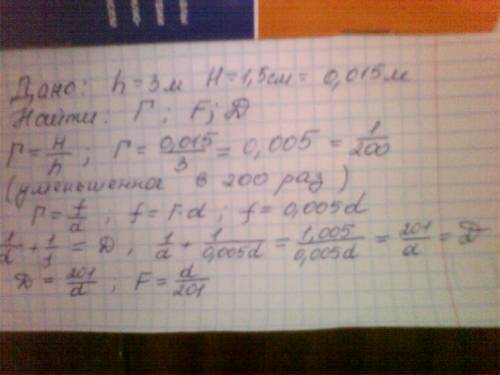 Дано: h = 3 м H = 1,5 см = 0,015 м
Найти: Г ; F; D
Г = H/h ; Г = 0,015/3 = 0,005 = 1/200
(уменьшенное в 200 раз)
Г = f/d ; f = Г·d ; f = 0,005d
1/d + 1/f = D ; 1/d + 1/0,005d = 1,005/0,005d = 201/d = D
D = 201/d ; F = d/201